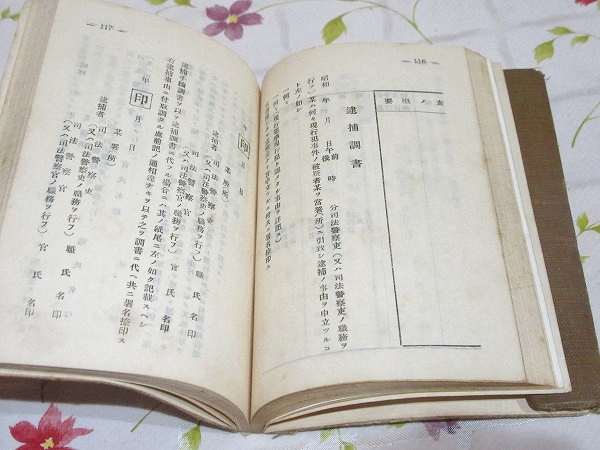 — 116 —
表ノ徴要
逮捕調書
昭和 年 月 日午前後 時 分司法警察吏(又ハ司法警察吏ノ職務ヲ
行フ)某ハ何々現行犯事件ノ被疑者某ヲ當署(所)ニ引致シ逮捕ノ事由ヲ申立ツルコ
ト左ノ如シ
一何々
— 117 —
年 月 日
某署(所)
司法警察吏
(又ハ司法警察吏ノ職務ヲ行フ) 職 氏 名 印
逮捕者
司法警察官
(又ハ司法警察官ノ職務ヲ行フ) 官 氏 名 印
逮捕手續調書ヲ以テ逮捕調書ニ代フル場合ニハ其ノ紙尾ニ左ノ如ク記載スヘシ
右逮捕事由ニ付取調タル處前記ノ通相違ナキヲ以テ之ヲ調書ニ代ヘ共ニ署名捺印ス
年 印 月 日
某署(所)
逮捕者
司法警察吏
(又ハ司法警察吏ノ職務ヲ行フ) 職 氏 名 印
司法警察官
(又ハ司法警察官ノ職務ヲ行フ) 官 氏 名 印